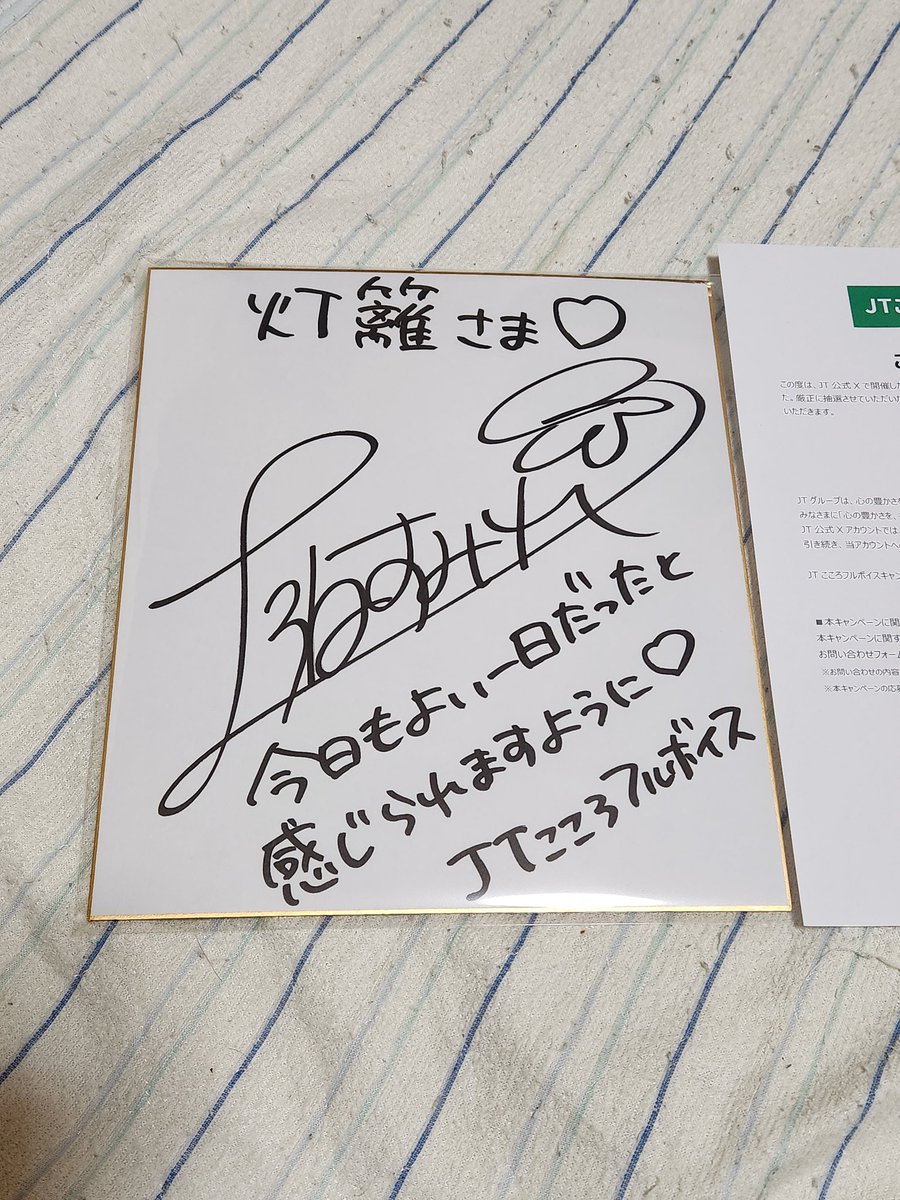 灯籠さま♡
すみれ
今日もよい一日だったと
感じられますように♡
JTこころフルボイス
JTこ
この度は、JT 公式 X で開催した
た。厳正に抽選させていただいた
いただきます。
JT グループは、心の豊かさを
みなさまに「心の豊かさを、
JT 公式 X アカウントでは、
引き続き、当アカウントへ
JT こころフルボイスキャン
■ 本キャンペーンに関
本キャンペーンに関す
お問い合わせフォーム
※お問い合わせの内容
※本キャンペーンの応募